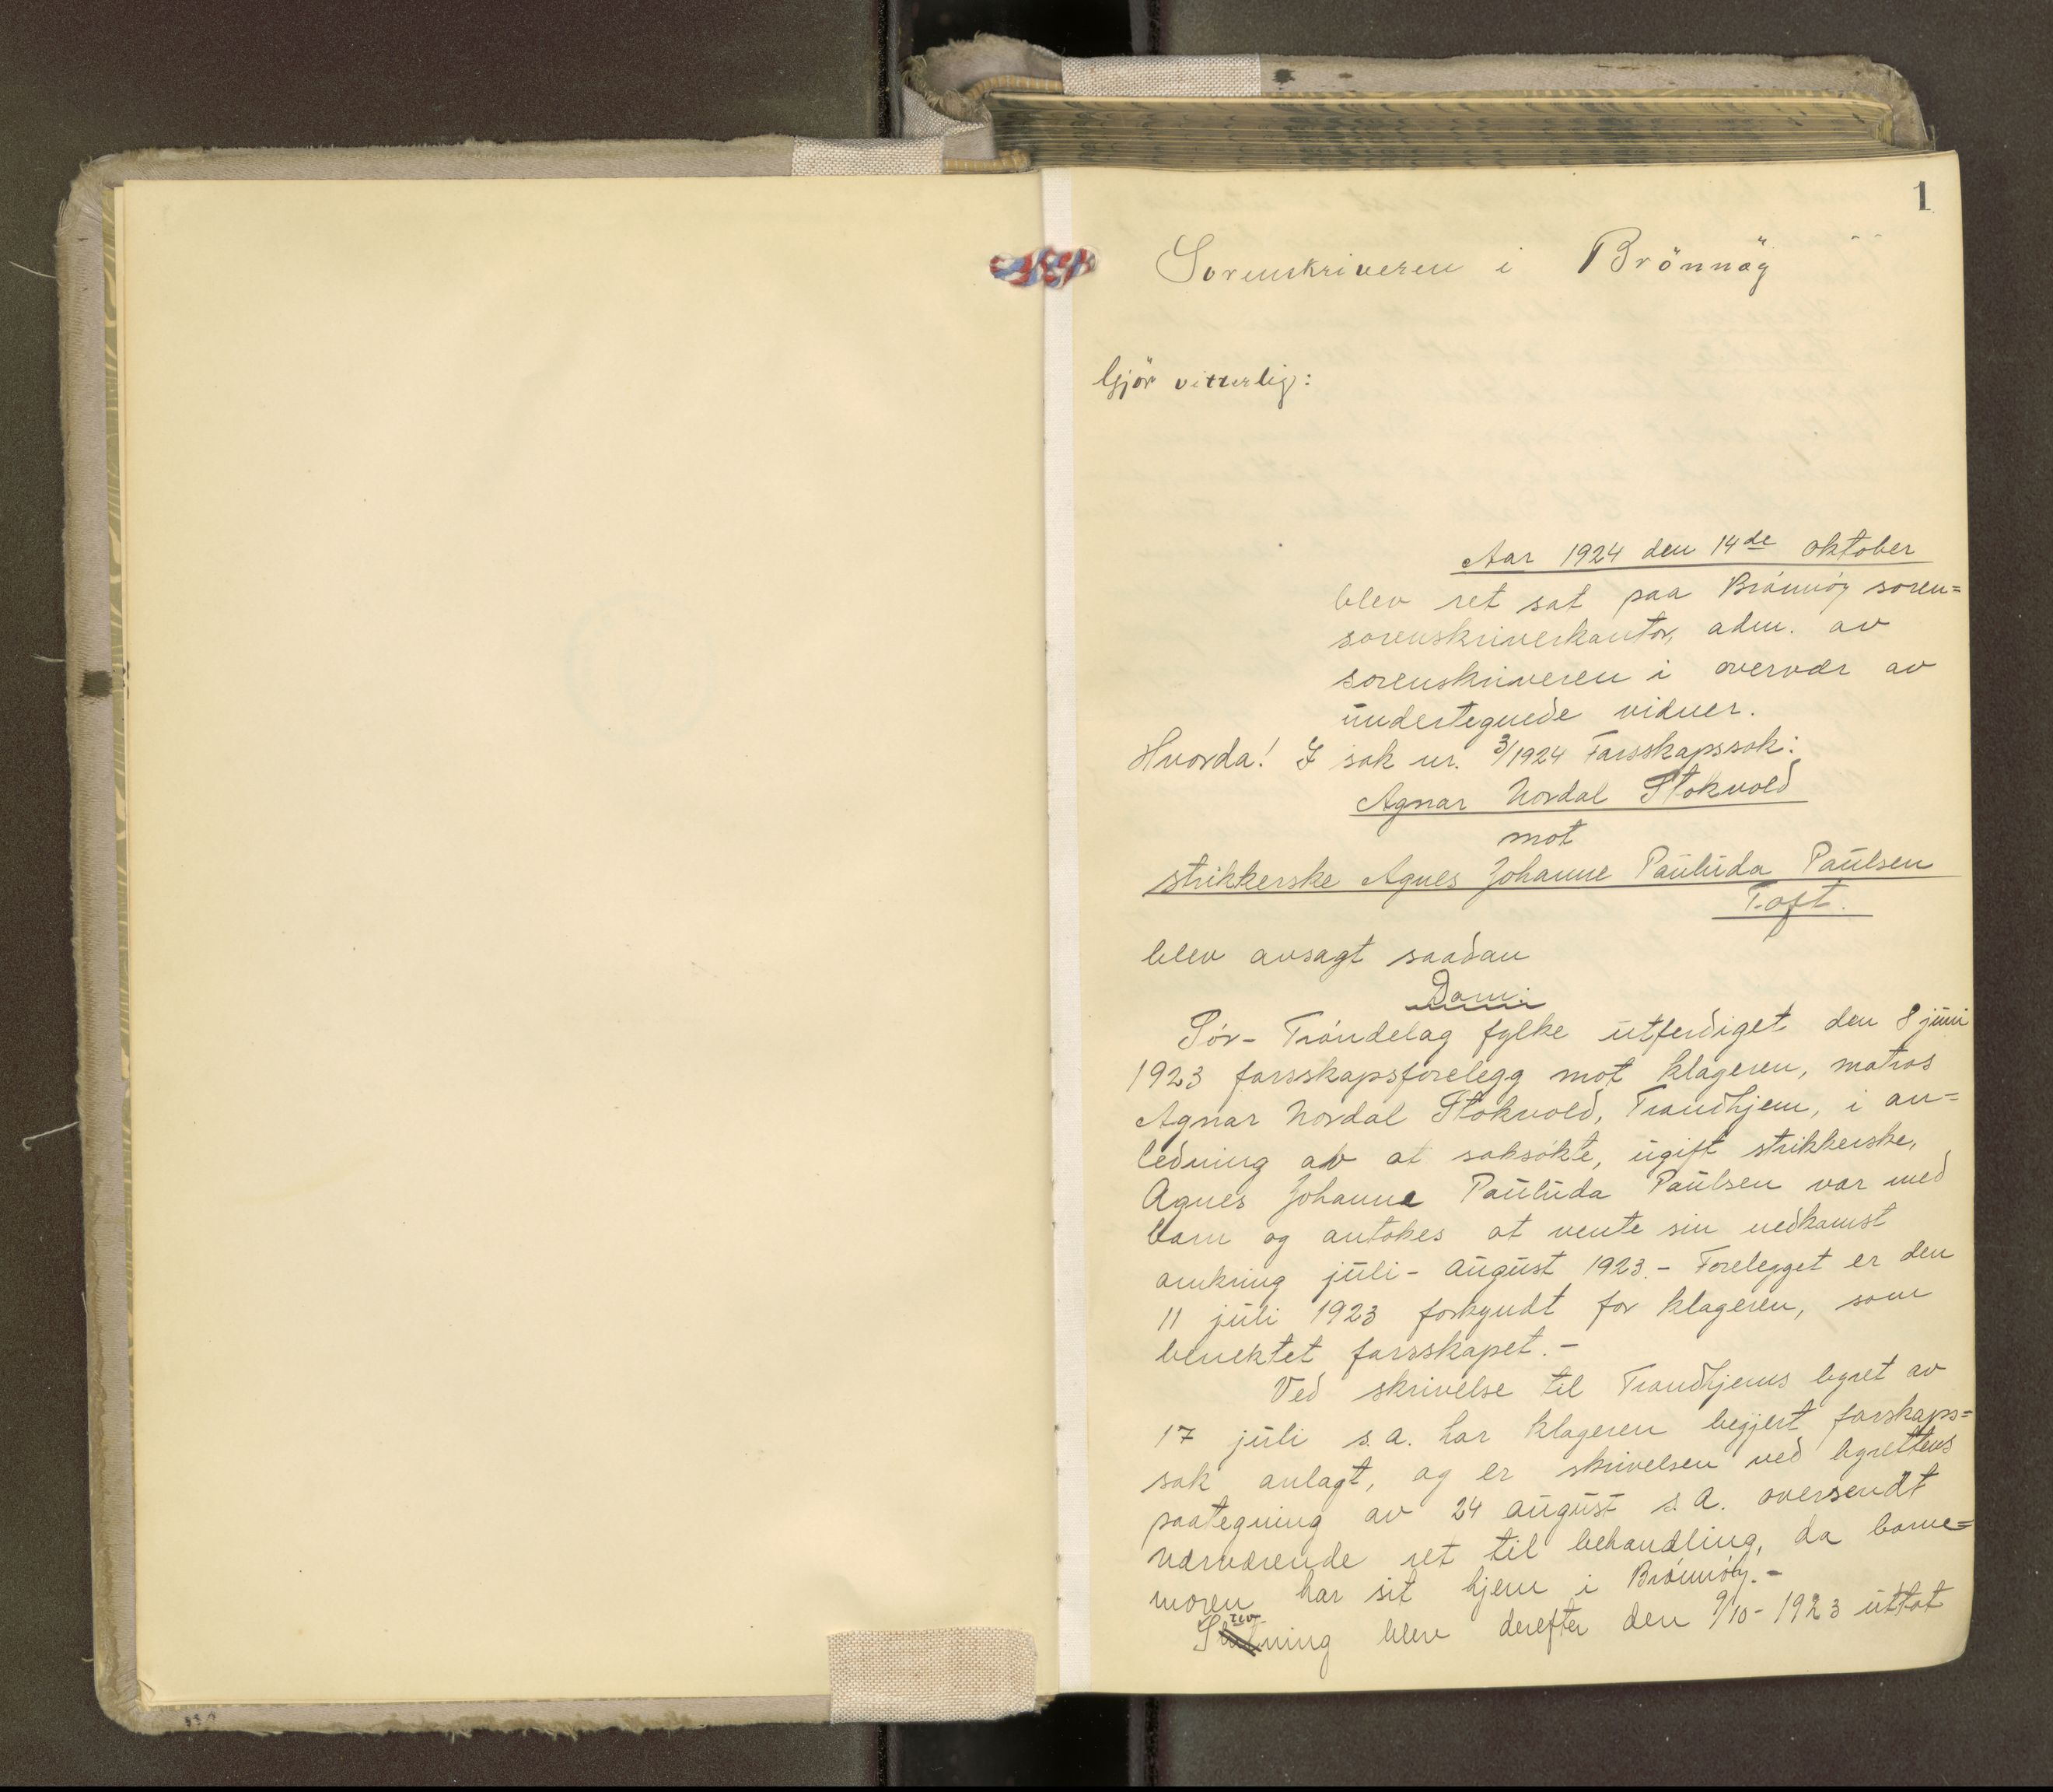 1
Sorenskriveren i Brönnöy
Gjör vitterlig:
Aar 1924 den 14de oktober
blev ret sat paa Brönnöy soren=
sorenskriverkontor, adm. av
sorenskriveren i overvær av
undertegnede vidner.
Hvorda! I sak nr. 3/1924 Farsskapssak:
Agnar Nordal Stokvold
mot
strikkerske Agnes Johanne Paulúda Paulsen
Toft.
blev avsagt saadan
Dom:
Sör-Tröndelag fylke utferdiget den 8 juni
1923 farsskapsforelegg mot klageren, matros
Agnar Nordal Stokvold, Trondhjem, i an=
ledning av at saksökte, ugift strikkerske,
Agnes Johanne Paulúda Paulsen var med
barn og antokes at vente sin nedkomst
omkring juli-august 1923.- Forelegget er den
11 juli 1923 forkyndt for klageren, som
benektet farsskapet.-
Ved skrivelse til Trondhjems byret av
17 juli s.a. har klageren begjert farskaps=
sak anlagt, og er skrivelsen ved byrettens
paategning av 24 august s.a. oversendt
nærværende ret til behandling, da barne=
moren har sit hjem i Brönnöy.-
Stevning blev derefter den 9/10-1923 uttat